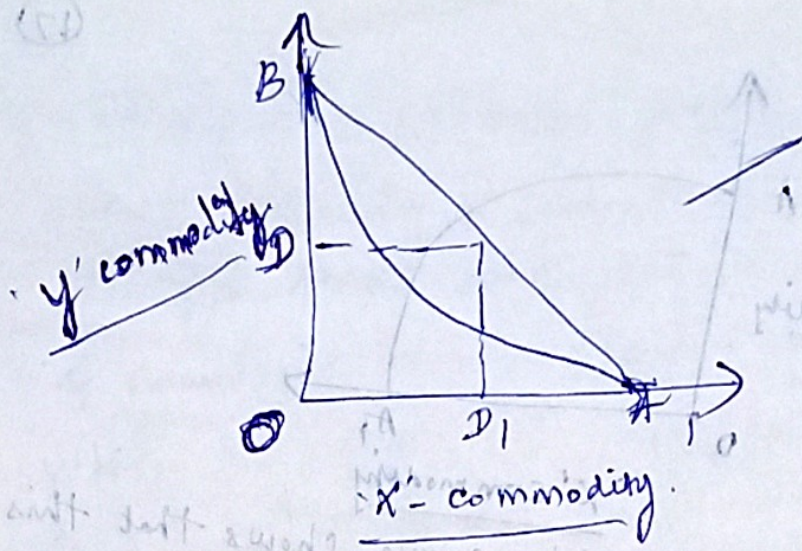 B
Y' commodity
D
O
D1
A
X'- commodity.